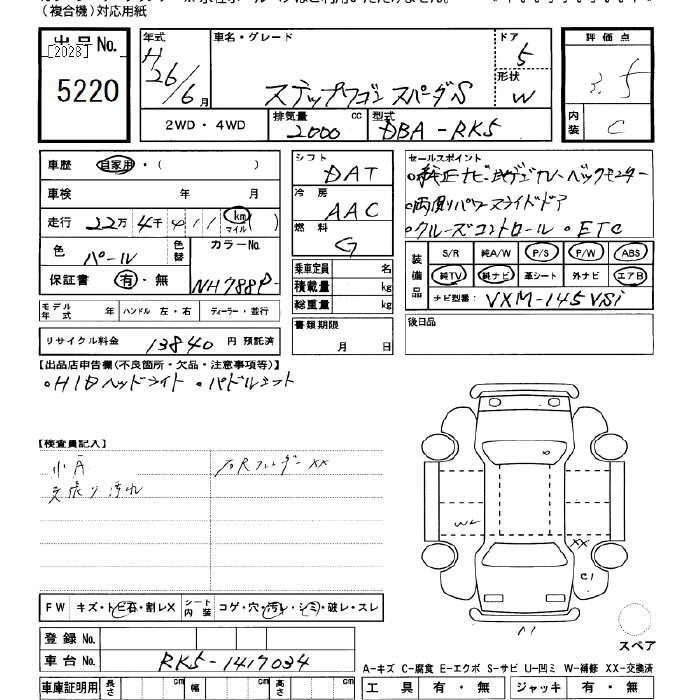 (複合機)対応用紙
出品No.
[2028]
5220
年式
H
26/6月
車名・グレード
ステップワゴン スパーダS
ドア
5
形状
W
2WD・4WD
排気量 cc
2000
型式
DBA-RK5
評価点
3.5
内装
C
車歴 自家用・( )
車検 年 月
走行 22万4千 km マイル
色 パール
色替
カラーNo.
NH788P-
保証書 有・無
モデル年式 年 ハンドル 左・右 ディーラー・並行
リサイクル料金 13840 円 預託済
シフト
DAT
冷房
AAC
燃料
G
乗車定員 名
積載量 kg
総重量 kg
書類期限
月 日
セールスポイント
・純正ナビ
・両側パワースライドドア
・クルーズコントロール ・ETC
装備品
S/R 純A/W P/S P/W ABS
純TV 純ナビ 革シート 外ナビ エアB
ナビ型番: VXM-145VSi
後日品
【出品店申告欄(不良箇所・欠品・注意事項等)】
・HIDヘッドライト ・パドルシフト
【検査員記入】
小A
天張り汚れ
右Rフェンダー XX
W2
XX
C1
A1
スペア
FW キズ・トビ石・割レX シート内装 コゲ・穴・汚レ・シミ・破レ・スレ
登録No.
車台No. RK5-1417034
A-キズ C-腐食 E-エクボ S-サビ U-凹ミ W-補修 XX-交換済
車庫証明用 長さ cm 幅 cm 高さ cm
工具 有・無 ジャッキ 有・無